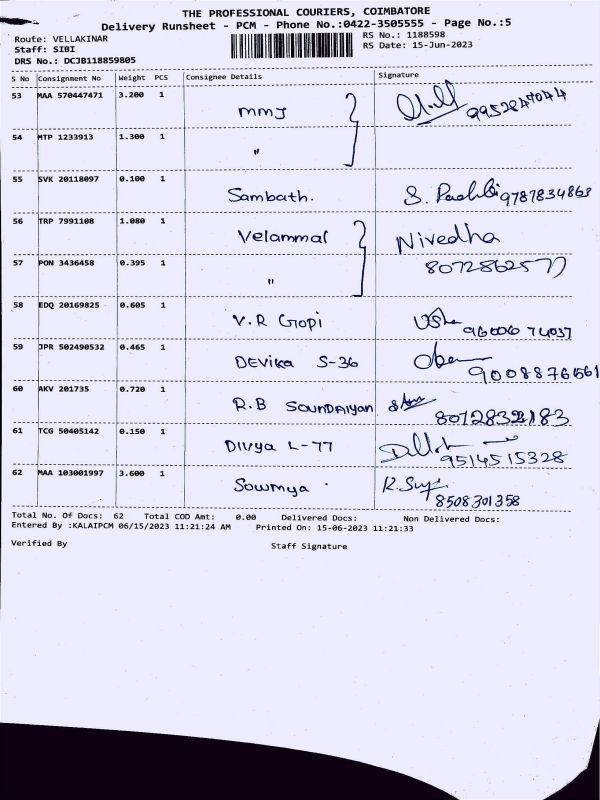 THE PROFESSIONAL COURIERS, COIMBATORE
Delivery Runsheet - PCM - Phone No.:0422-3505555 - Page No.:5
Route: VELLAKINAR RS No.: 1188598
Staff: SIBI RS Date: 15-Jun-2023
DRS No.: DCJB118859805
S No Consignment No Weight PCS Consignee Details Signature
53 MAA 570447471 3.200 1 MMJ 9952847044
54 MTP 1233913 1.300 1 "
55 SVK 20118097 0.100 1 Sambath. S. 9787834863
56 TRP 7991108 1.080 1 Velammal Nivedha
57 PON 3436458 0.395 1 " 8072862577
58 EDQ 20169825 0.605 1 V.R Gopi Usha 9600674037
59 JPR 502490532 0.465 1 DEVIKA S-36 9008876561
60 AKV 201735 0.720 1 R.B SOUNDAIYAN
61 TCG 50405142 0.150 1 Divya L-77 9514515328
62 MAA 103001997 3.600 1 Sowmya . 8508301358
Total No. Of Docs: 62 Total COD Amt: 0.00 Delivered Docs: Non Delivered Docs:
Entered By :KALAIPCM 06/15/2023 11:21:24 AM Printed On: 15-06-2023 11:21:33
Verified By Staff Signature